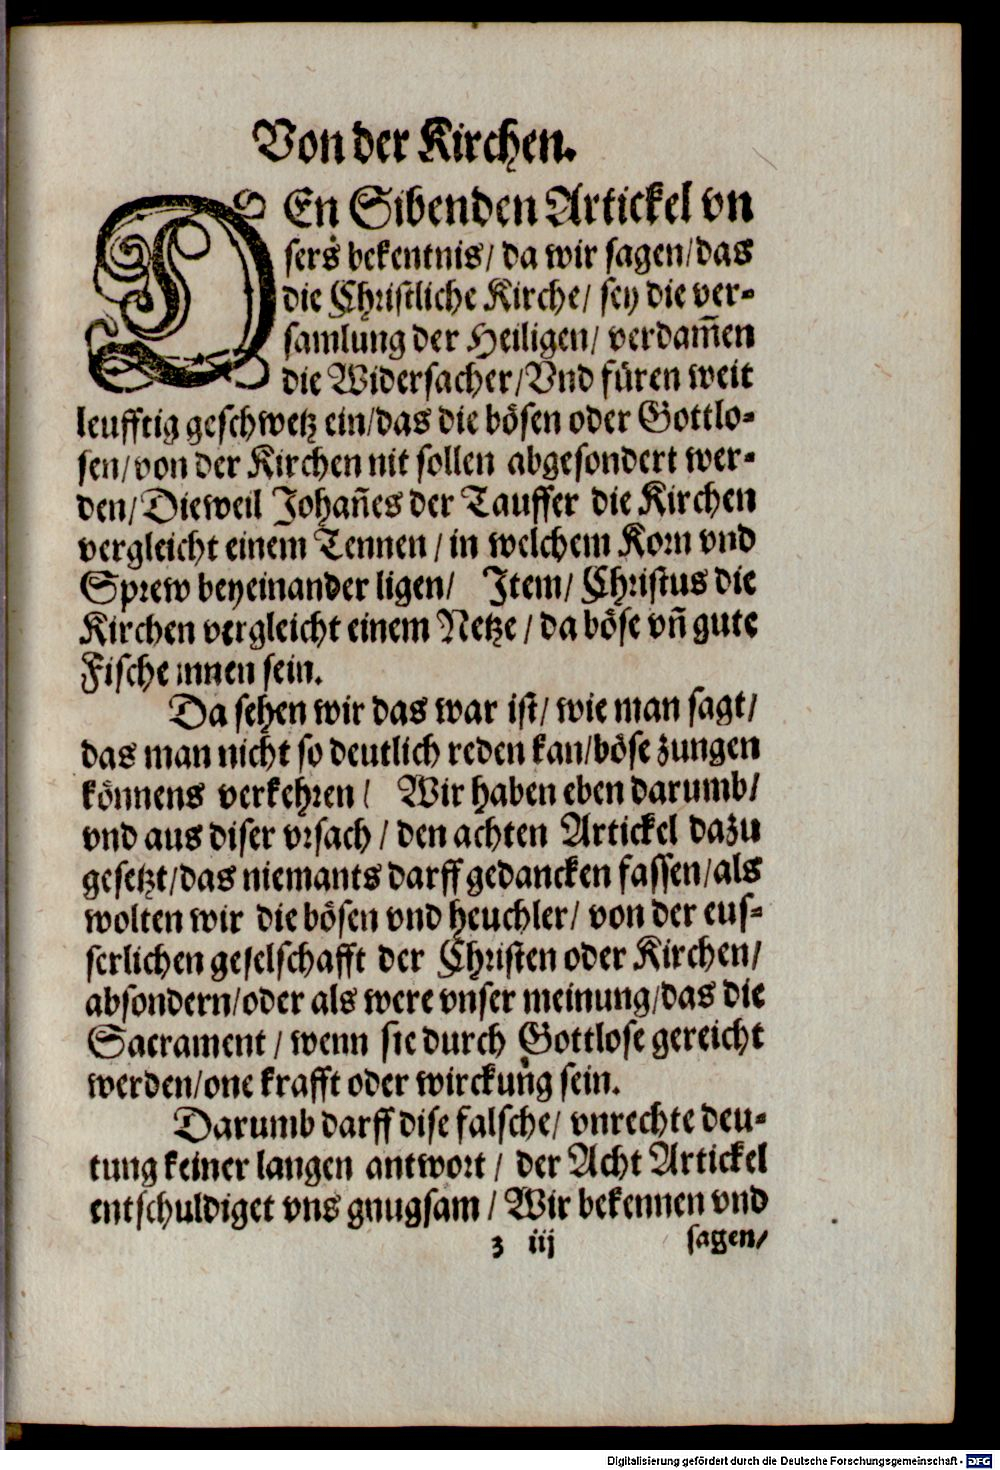 Von der Kirchen.
DEn Sibenden Artickel vn
sers bekentnis/ da wir sagen/das
die Christliche Kirche/ sey die ver-
samlung der Heiligen/ verdam̄en
die Widersacher/Vnd füren weit
leufftig geschwetz ein/das die bösen oder Gottlo-
sen/von der Kirchen nit sollen abgesondert wer-
den/Dieweil Johañes der Tauffer die Kirchen
vergleicht einem Tennen/ in welchem Korn vnd
Sprew beyeinander ligen/ Item/ Christus die
Kirchen vergleicht einem Netze/ da böse vñ gute
Fische innen sein.
Da sehen wir das war ist/ wie man sagt/
das man nicht so deutlich reden kan/böse zungen
könnens verkehren/ Wir haben eben darumb/
vnd aus diser vrsach/ den achten Artickel dazu
gesetzt/das niemants darff gedancken fassen/als
wolten wir die bösen vnd heuchler/ von der eus-
serlichen geselschafft der Christen oder Kirchen/
absondern/oder als were vnser meinung/das die
Sacrament/ wenn sie durch Gottlose gereicht
werden/one krafft oder wirckung sein.
Darumb darff dise falsche/ vnrechte deu-
tung keiner langen antwort/ der Acht Artickel
entschuldiget vns gnugsam/ Wir bekennen vnd
z iij sagen/
Digitalisierung gefördert durch die Deutsche Forschungsgemeinschaft - DFG